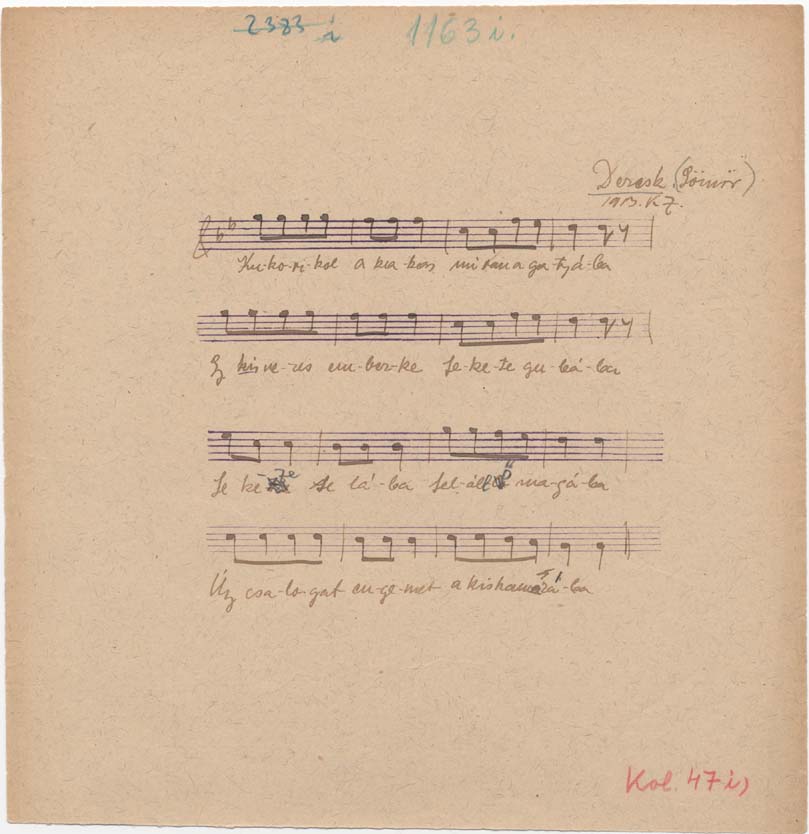 2383 i
1163 i.
Deresk (Gömör)
1913. K Z.
Ku-ko-ri-kol a ka-kas mi a ga-tyá-ba
Ez kis ve-res em-ber-ke fe-ke-te gu-bá-ba
Fe ke-te se lá-ba fel-áll ma-gá-ba
Úgy csa-lo-gat en-ge-met a kis ka-ma-rá-ba
Kol. 47 i)